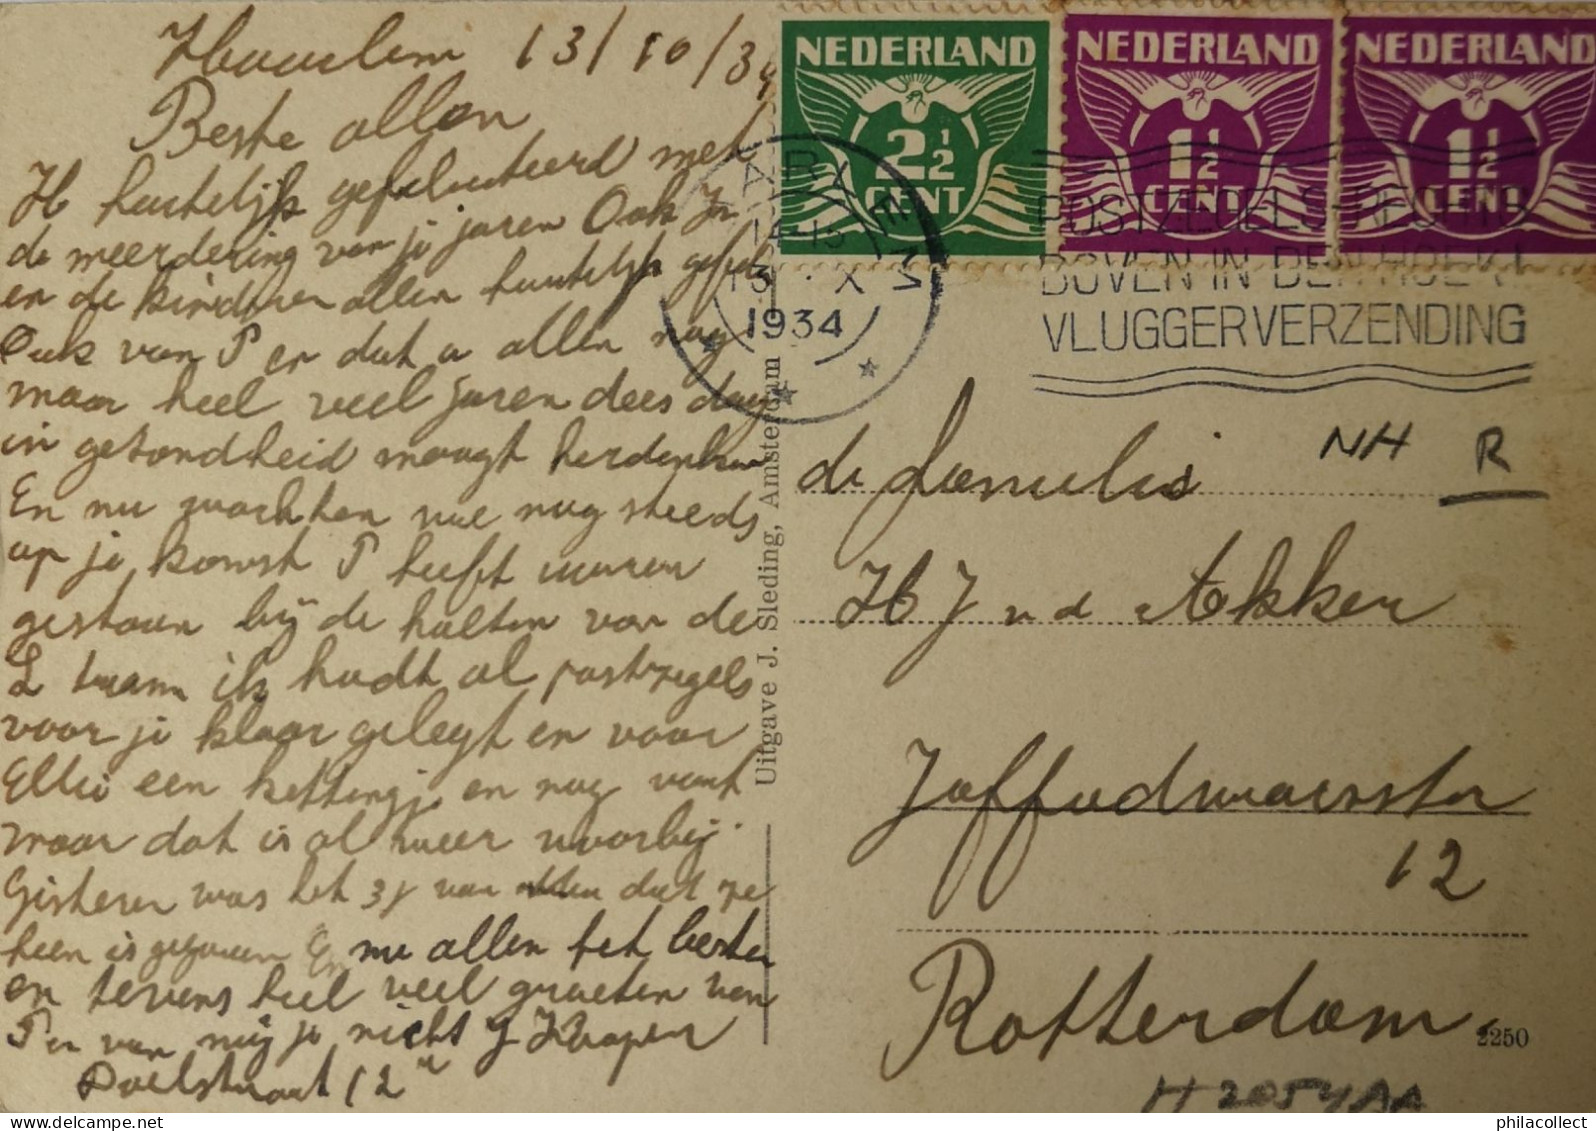 Haarlem 13/10/34
Beste allen
H hartelijk gefeliciteerd met
de meerdering van je jaren Ook Jo
en de kinderen allen hartelijk gefel
Ook van P en dat u allen nog
maar heel veel jaren deesdag
in getondheid moogt herdenken
En nu wachten we nog steeds
op je komst P heeft uuren
gestaan bij de halten van de
L tram ik hadt al postzegels
voor je klaar gelegt en voor
Ellie een kettingje en nog wat
maar dat is al weer voorbij.
Gisteren was het 3j dat ze
heen is gegaan En nu allen het beste
en tevens heel veel groeten van
P en van mij je nicht J Knapen
Poelstraat 12
NEDERLAND
2½
CENT
NEDERLAND
1½
CENT
NEDERLAND
1½
CENT
HAARLEM
13 · X
1934
POSTZEGELS RECHTS
BOVEN IN DEN HOEK!
VLUGGER VERZENDING
Uitgave J. Sleding, Amsterdam
NH R
de familie
H J v d Akker
12
Rotterdam
2250
H 2054AA
philacollect
www.delcampe.net